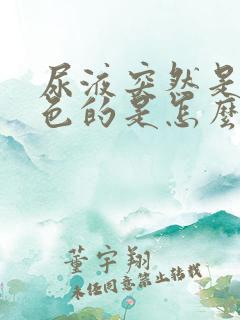 尿液突然是
色的是怎麼
董宇翔
未经同意禁止转载